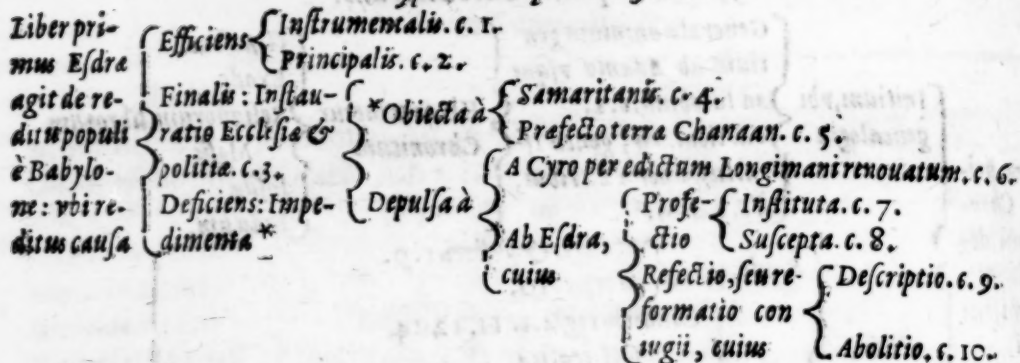 Liber pri-
mus Eſdræ
agit de re-
ditu populi
è Babylo-
ne: vbi re-
ditus cauſa
Efficiens
Inſtrumentalis. c. 1.
Principalis. c. 2.
Finalis: Inſtau-
ratio Eccleſiæ &
politiæ. c. 3.
Deficiens: Impe-
dimenta *
*Obiecta à
Samaritanis. c. 4.
Præfecto terræ Chanaan. c. 5.
Depulſa à
A Cyro per edictum Longimani renouatum. c. 6.
Ab Eſdra,
cuius
Profe-
ctio
Inſtituta. c. 7.
Suſcepta. c. 8.
Refectio, ſeu re-
formatio con
iugii, cuius
Deſcriptio. c. 9.
Abolitio. c. 10.